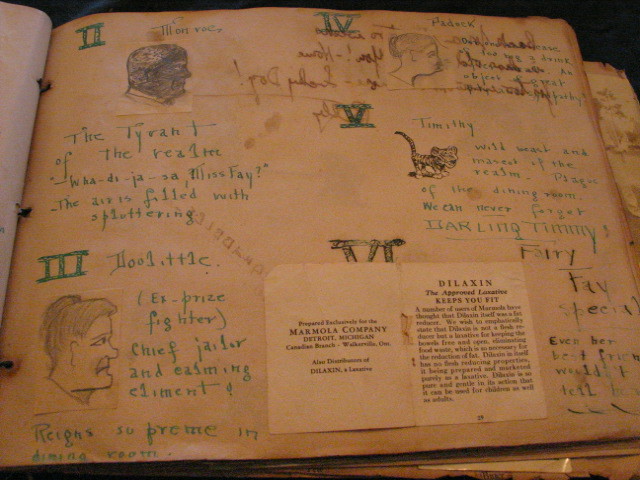 II
Monroe,
The Tyrant
of the realm
"-Wha-di-ja-sa, Miss Fay?"
-The air is filled with
spluttering
III Doolittle.
(Ex-prize
fighter)
Chief jailor
and calming
eliment!
Reigns supreme in
dining room.
IV
Padock
case
drink
An
object
great
V
Timithy
wild beast and
of the
realm. Plague
of the dining room.
We can never forget
DARLING TIMMY!
VI
Fairy
Fay
special
Even her
best friend
wouldn't
tell her
Prepared Exclusively for the
MARMOLA COMPANY
DETROIT, MICHIGAN
Canadian Branch - Walkerville, Ont.
Also Distributors of
DILAXIN, a Laxative
DILAXIN
The Approved Laxative
KEEPS YOU FIT
A number of users of Marmola have
thought that Dilaxin itself was a fat
reducer. We wish to emphatically
state that Dilaxin is not a flesh re-
ducer but a laxative for keeping the
bowels free and open, eliminating
food waste, which is so necessary for
the reduction of fat. Dilaxin in itself
has no flesh reducing properties,
it being prepared and marketed
purely as a laxative. Dilaxin is so
pure and gentle in its action that
it can be used for children as well
as adults.